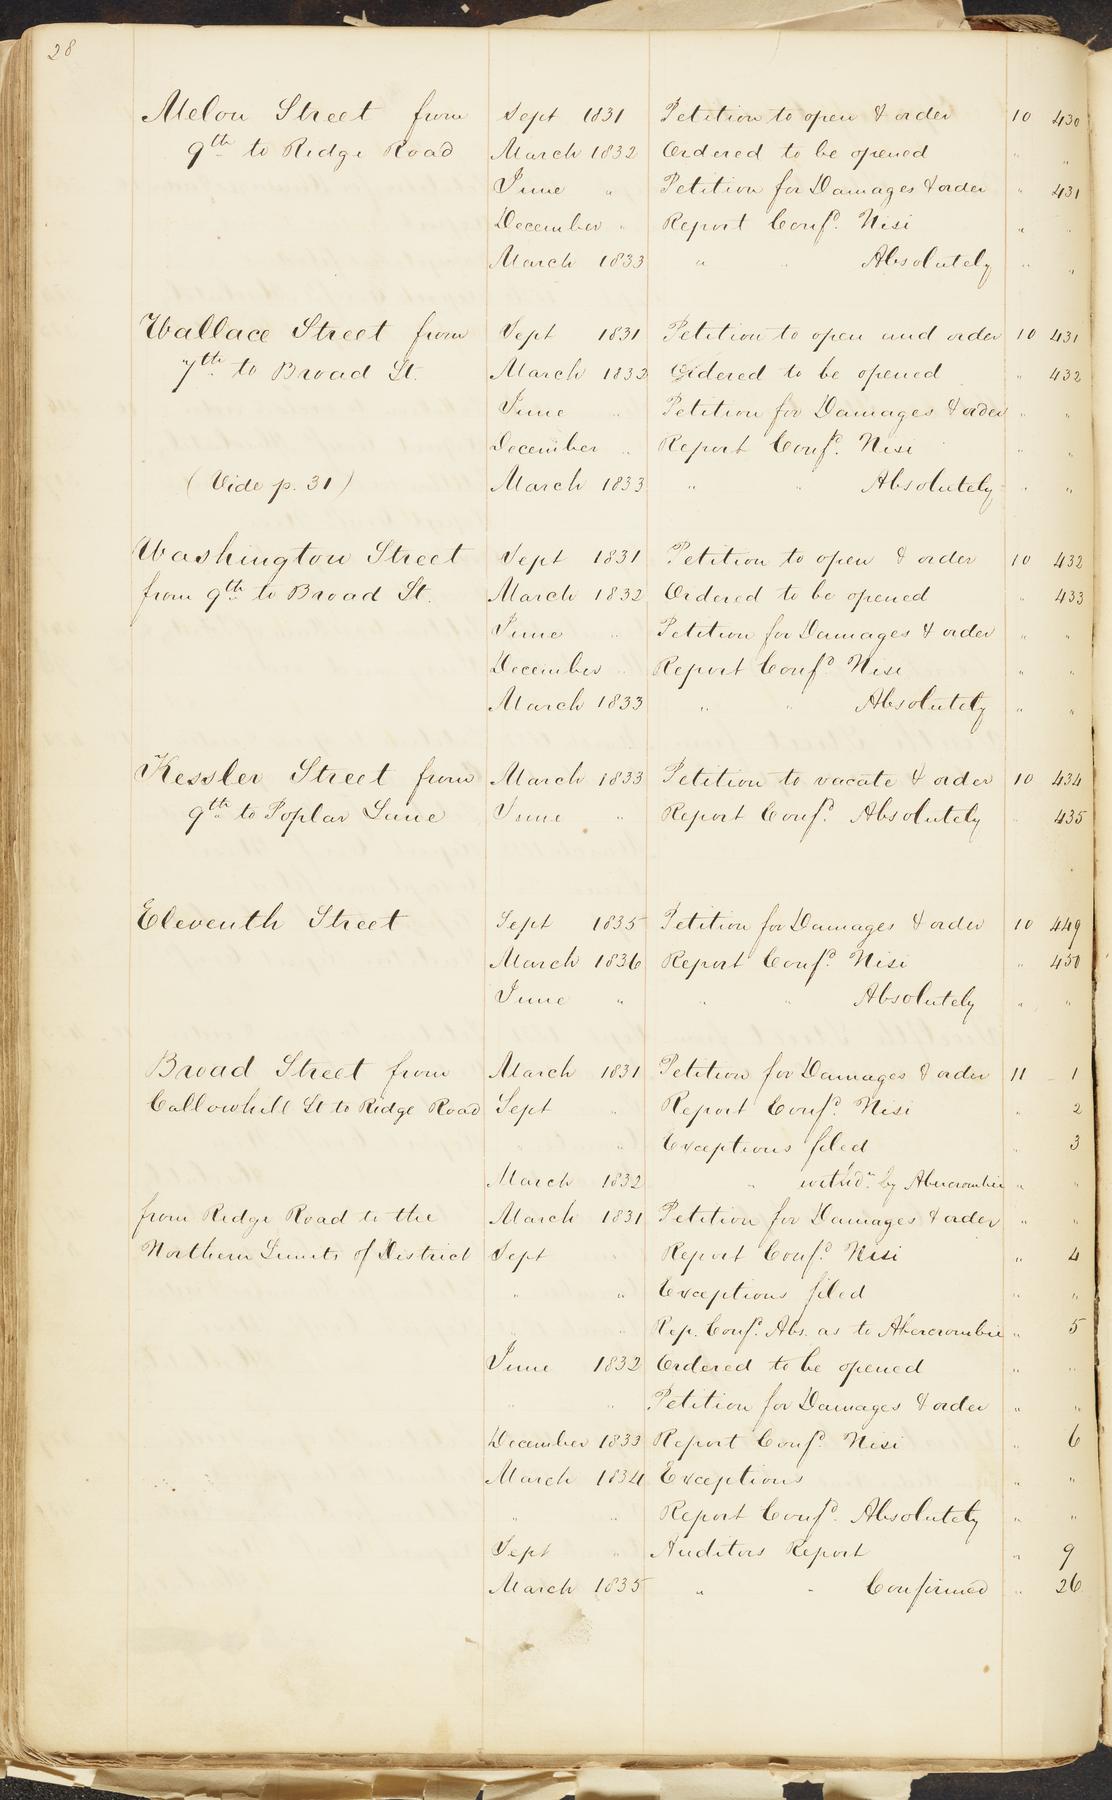 28
Melon Street from Sept 1831 Petition to open & order 10 430
9th to Ridge Road March 1832 Ordered to be opened " "
June " Petition for Damages & order " 431
December " Report Confd. Nisi " "
March 1833 " " Absolutely " "
Wallace Street from Sept 1831 Petition to open and order 10 431
7th to Broad St. March 1832 Ordered to be opened " 432
June " Petition for Damages & order " "
December " Report Confd. Nisi " "
(Vide p. 31) March 1833 " " Absolutely " "
Washington Street Sept 1831 Petition to open & order 10 432
from 9th to Broad St. March 1832 Ordered to be opened " 433
June " Petition for Damages & order " "
December " Report Confd. Nisi " "
March 1833 " " Absolutely " "
Kessler Street from March 1833 Petition to vacate & order 10 434
9th to Poplar Lane June " Report Confd. Absolutely " 435
Eleventh Street Sept 1835 Petition for Damages & order 10 449
March 1836 Report Confd. Nisi " 450
June " " " Absolutely " "
Broad Street from March 1831 Petition for Damages & order 11 1
Callowhill St to Ridge Road Sept " Report Confd. Nisi " 2
" " Exceptions filed " 3
March 1832 " withdn. by Abercrombie " "
from Ridge Road to the March 1831 Petition for Damages & order " "
Northern Limits of District Sept " Report Confd. Nisi " 4
" " Exceptions filed " "
" " Rep. Confd. Abs. as to Abercrombie " 5
June 1832 Ordered to be opened " "
" " Petition for Damages & order " "
December 1833 Report Confd. Nisi " 6
March 1834 Exceptions " "
" " Report Confd. Absolutely " "
Sept " Auditors Report " 9
March 1835 " " Confirmed " 26